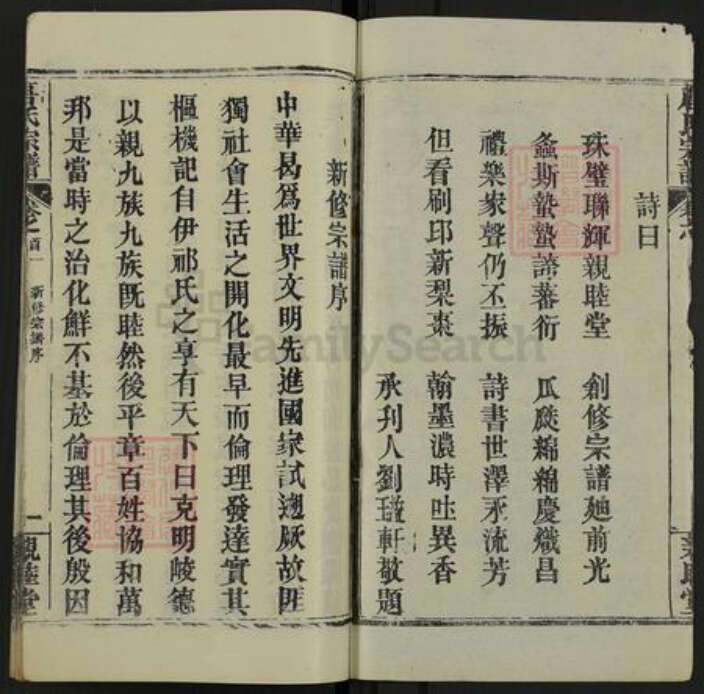 詩曰
珠璧聯輝親睦堂　創修宗譜廸前光
螽斯蟄蟄謗蕃衍　瓜瓞綿綿慶熾昌
禮樂家聲仍丕振　詩書世澤永流芳
但看刷印新梨棗　翰墨濃時吐異香
承刋人劉璇軒敬題
新修宗譜序
中華曷爲世界文明先進國家試遡厥故匪
獨社會生活之開化最早而倫理發達實其
樞機記自伊祁氏之享有天下曰克明峻德
以親九族九族既睦然後平章百姓協和萬
邦是當時之治化鮮不基於倫理其後殷因
氏宗譜
卷之首一
新修宗譜序
一
親睦堂
FamilySearch